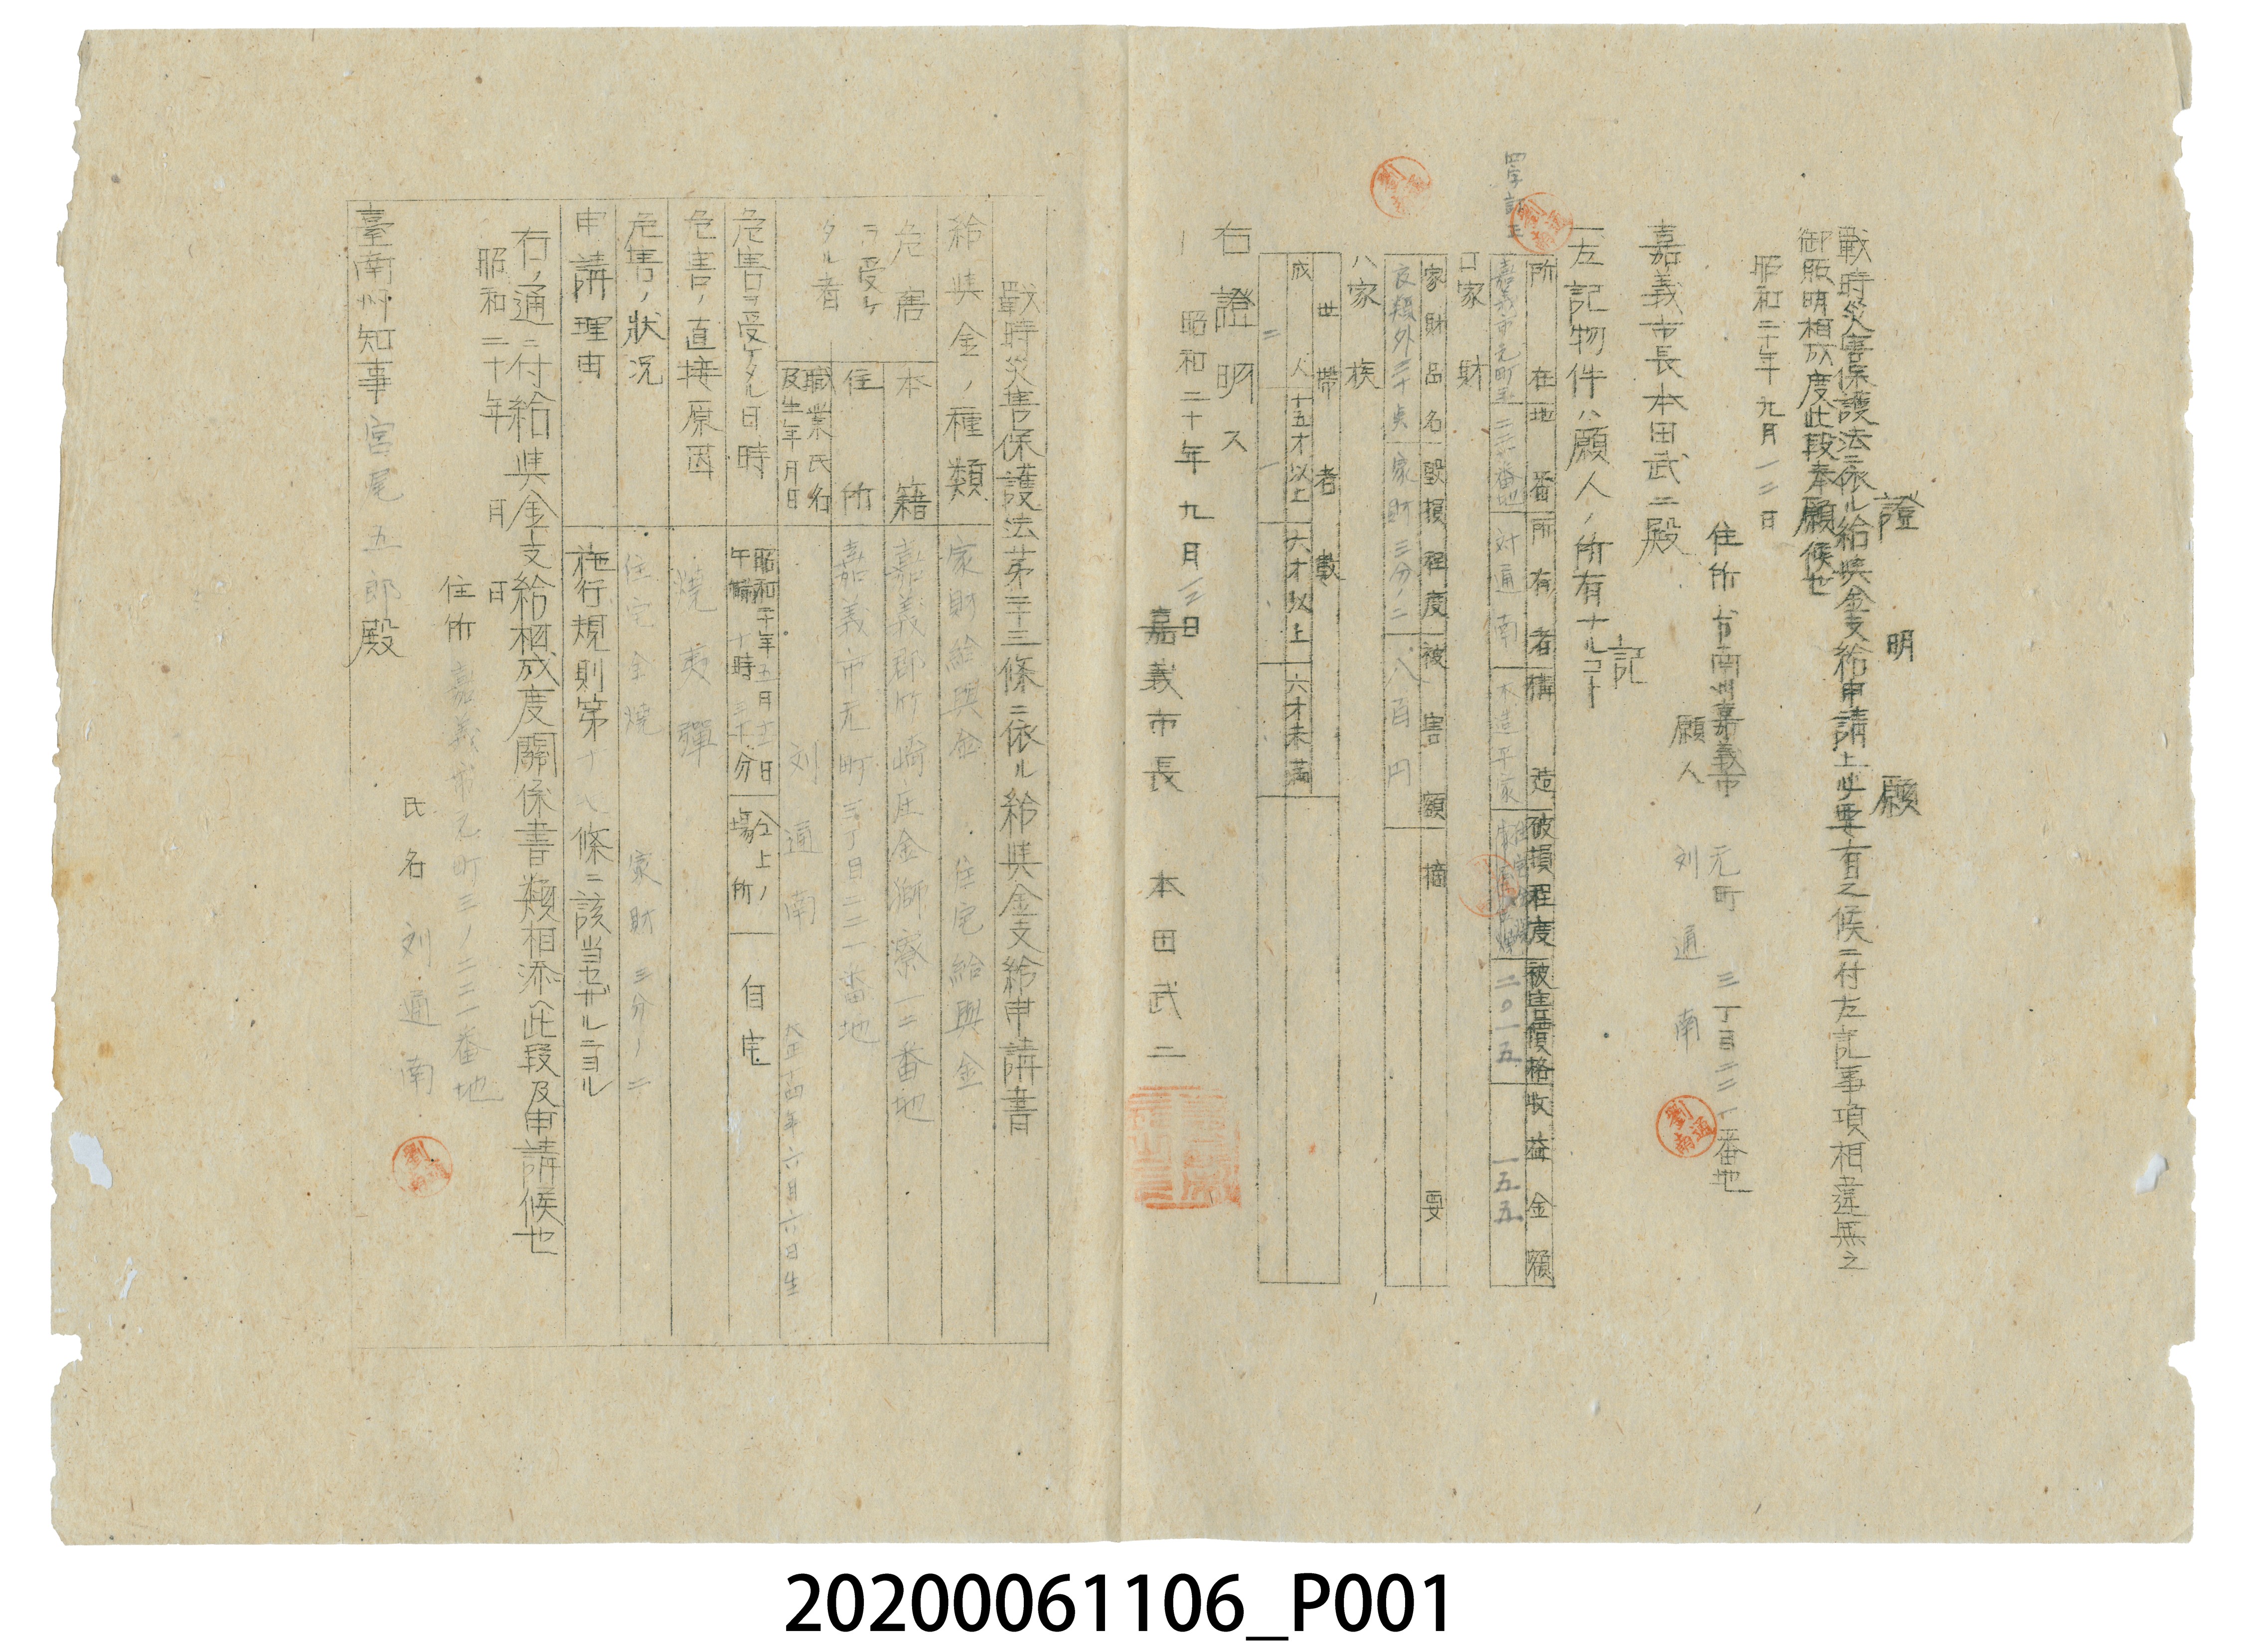 證明願
戰時災害保護法ニ依ル給與金支給申請上必要有之候ニ付左記事項相違無之
御照明相成度此段奉願候也
昭和二十年九月一二日
住所台南州嘉義市元町三丁目二二一番地
願人 刘通南
劉通南
嘉義市長本田武二殿
記
一左記物件ハ願人ノ所有ナルコト
所在地番 所有者 構造 破損程度 被害價格 收益金額
嘉義市元町三ノ二二一番地 刘通南 木造平家 二〇一五 一五五
四字訂正
ロ家財
家財品名 毀損程度 被害額 摘要
衣類外三十点 家財三分ノ二 八百円
ハ家族
世帶者數
成人 十五才以上 六才以上 六才未満
二 一
右證明ス
昭和二十年九月 日
嘉義市長 本田武二
戰時災害保護法第二十三條ニ依ル給與金支給申請書
給與金ノ種類 家財給與金 住宅給與金
危害ヲ受ケタル者
本籍 嘉義郡竹崎庄金獅寮一二番地
住所 嘉義市元町三丁目二二一番地
職業氏名及生年月日 刘通南 大正十四年六月六日生
危害ヲ受ケタル日時 昭和二十年五月 日午前十時三十分 場所 仝上ノ自宅
危害ノ直接原因 燒夷彈
危害ノ狀況 住宅全燒 家財三分ノ二
申請理由 施行規則第十八條ニ該当セザルニヨル
右ノ通ニ付給與金支給相成度關係書類相添ヘ此段及申請候也
昭和二十年 月 日
住所 嘉義市元町三ノ二二一番地
氏名 刘通南
臺南州知事宮尾五郎殿
20200061106_P001